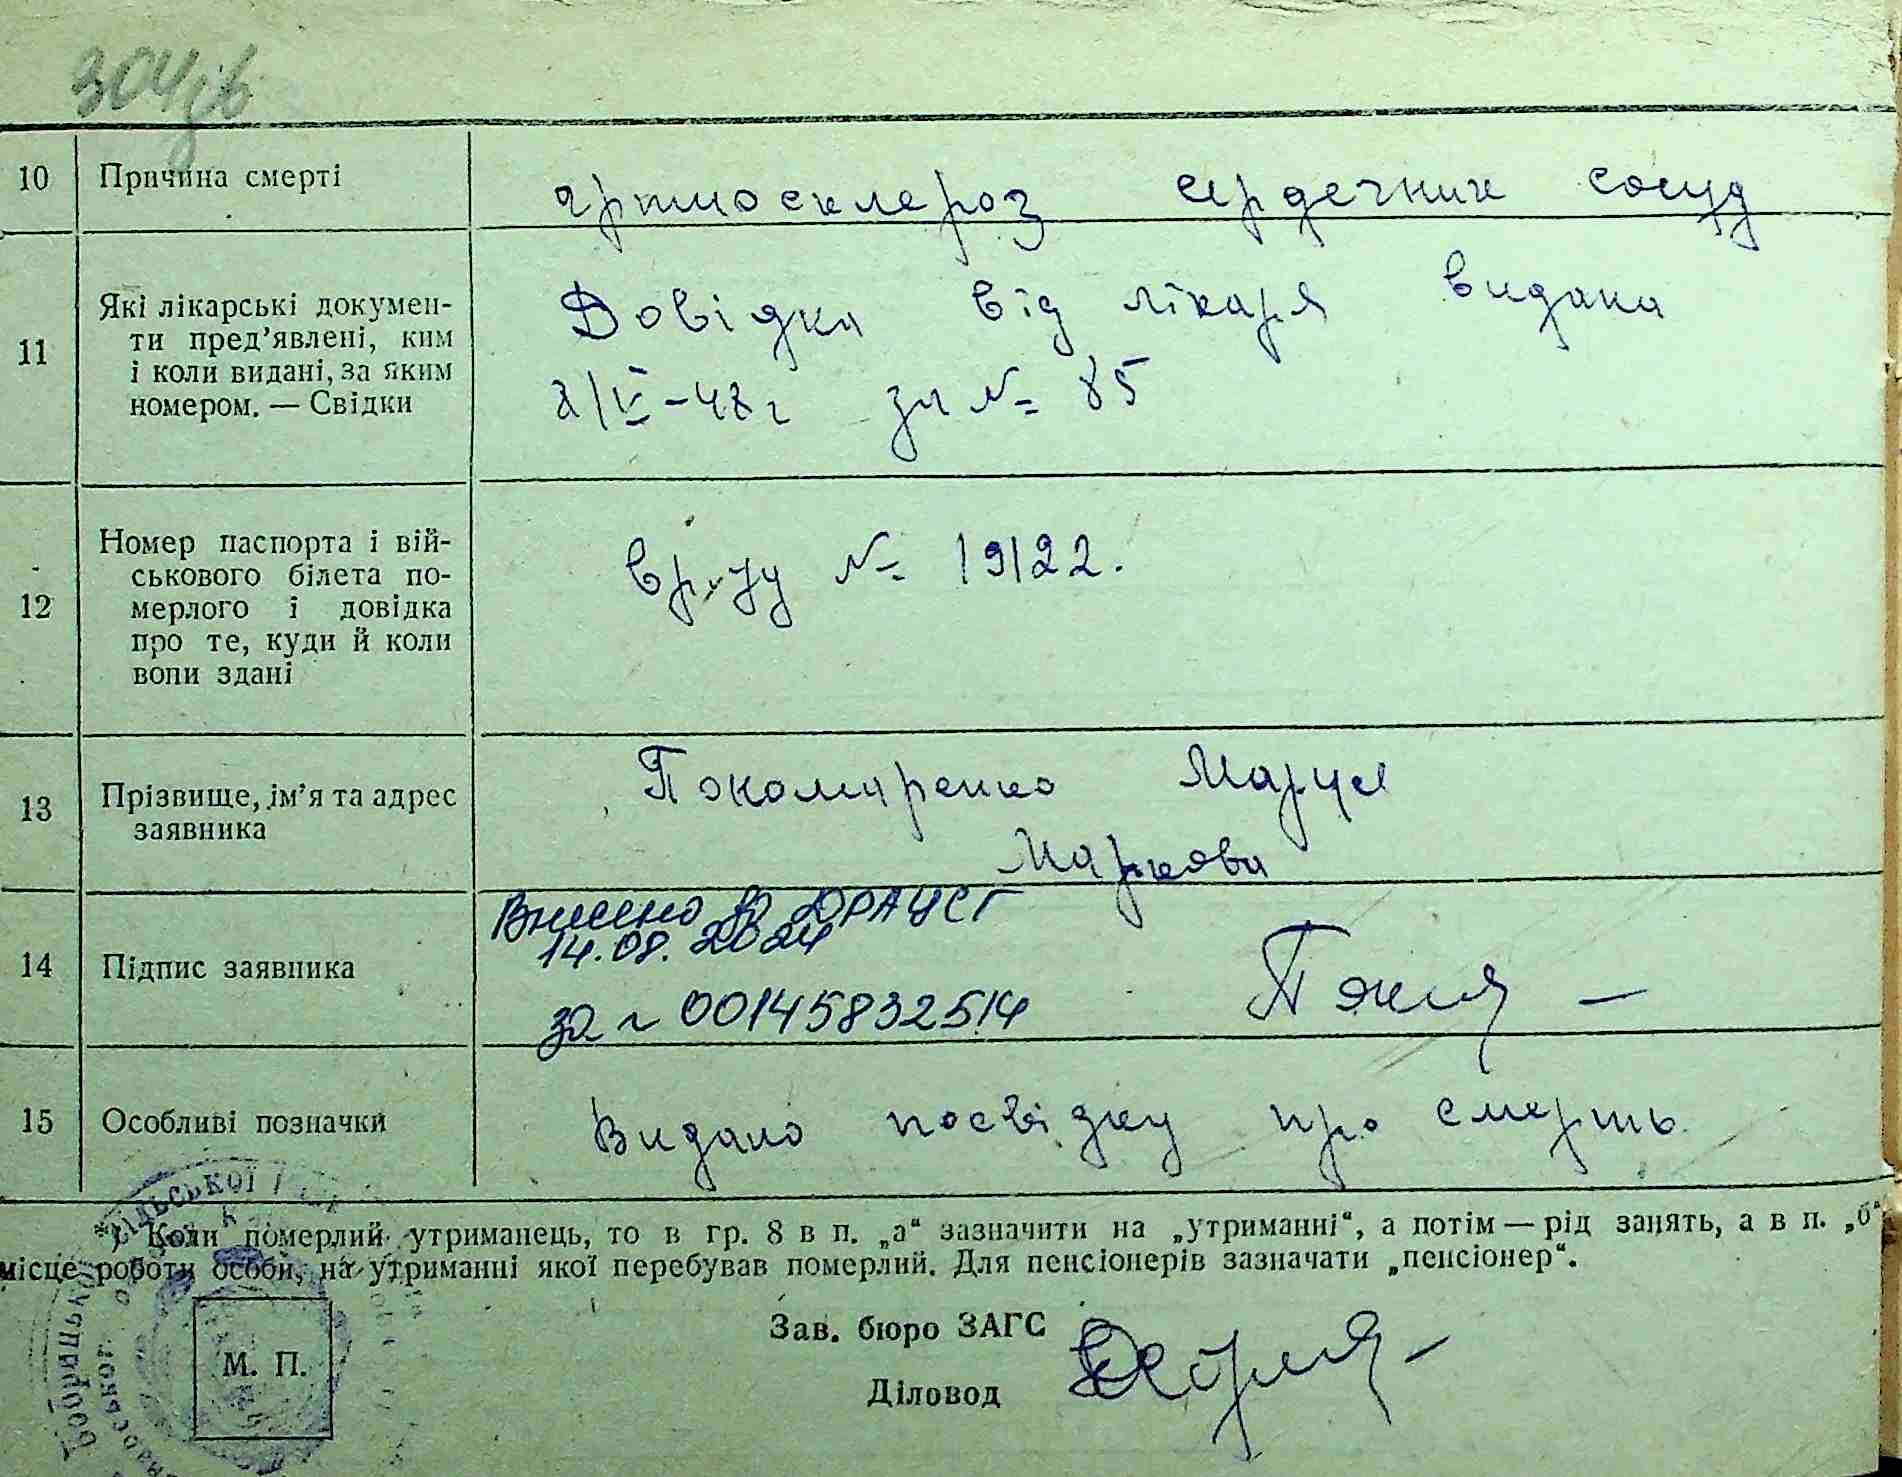 304зв
10 Причина смерті артиосклероз сердечних сосуд
11 Які лікарські докумен-
ти пред'явлені, ким
і коли видані, за яким
номером. — Свідки
Довідка від лікаря видана
48 г за № 85
12 Номер паспорта і вій-
ськового білета по-
мерлого і довідка
про те, куди й коли
вони здані
№ 19122.
13 Прізвище, ім'я та адрес
заявника
Пономаренко Маруся
Маркова
14 Підпис заявника
Внесено до ДРАЦСГ
14.08.2024
за № 00145832514
15 Особливі позначки Видано посвідку про смерть
*) Коли померлий утриманець, то в гр. 8 в п. „а“ зазначити на „утриманні“, а потім — рід занять, а в п. „б“
місце роботи особи, на утриманні якої перебував померлий. Для пенсіонерів зазначати „пенсіонер“.
Зав. бюро ЗАГС
М. П.
Діловод